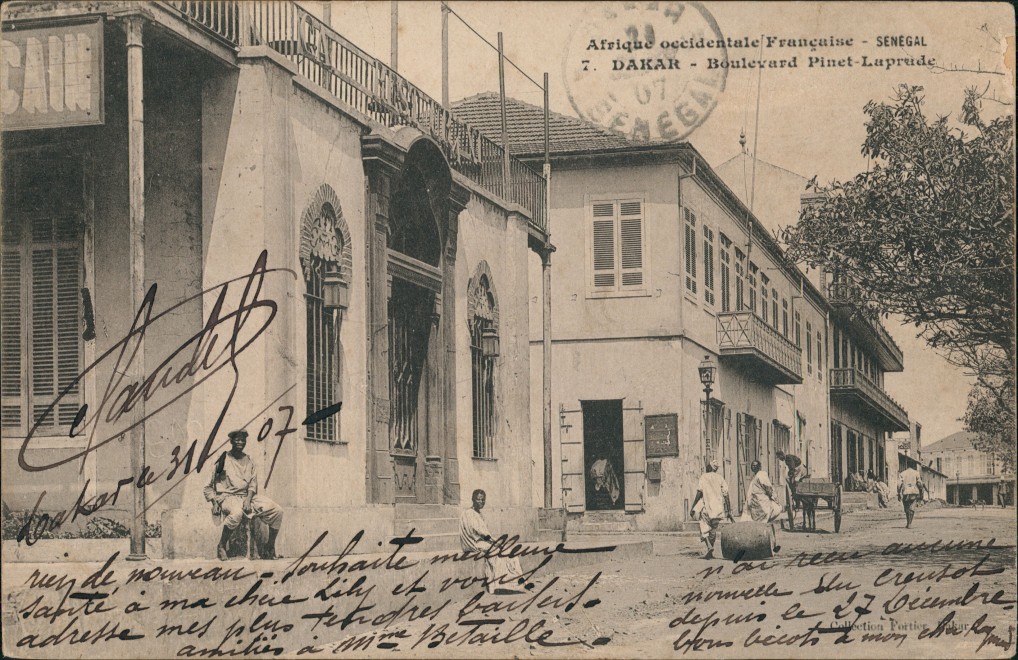 Afrique occidentale Française - SENEGAL
7. DAKAR - Boulevard Pinet-Laprade
07
SENEGAL
Dakar le 31 07 -
rien de nouveau - Souhaite meilleure
santé à ma chere Lily et vous
adresse mes plus tendres baisers -
amitiés à Mme Bétaille -
n'ai recu aucune
nouvelle du Creusot
depuis le 27 Décembre
Bons bécots à mon cher
Collection Fortier, Dakar